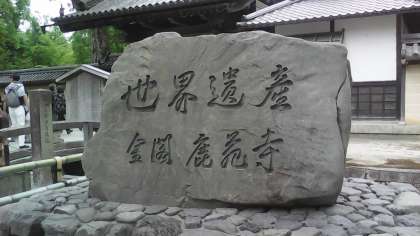 世界遺産
金閣 鹿苑寺